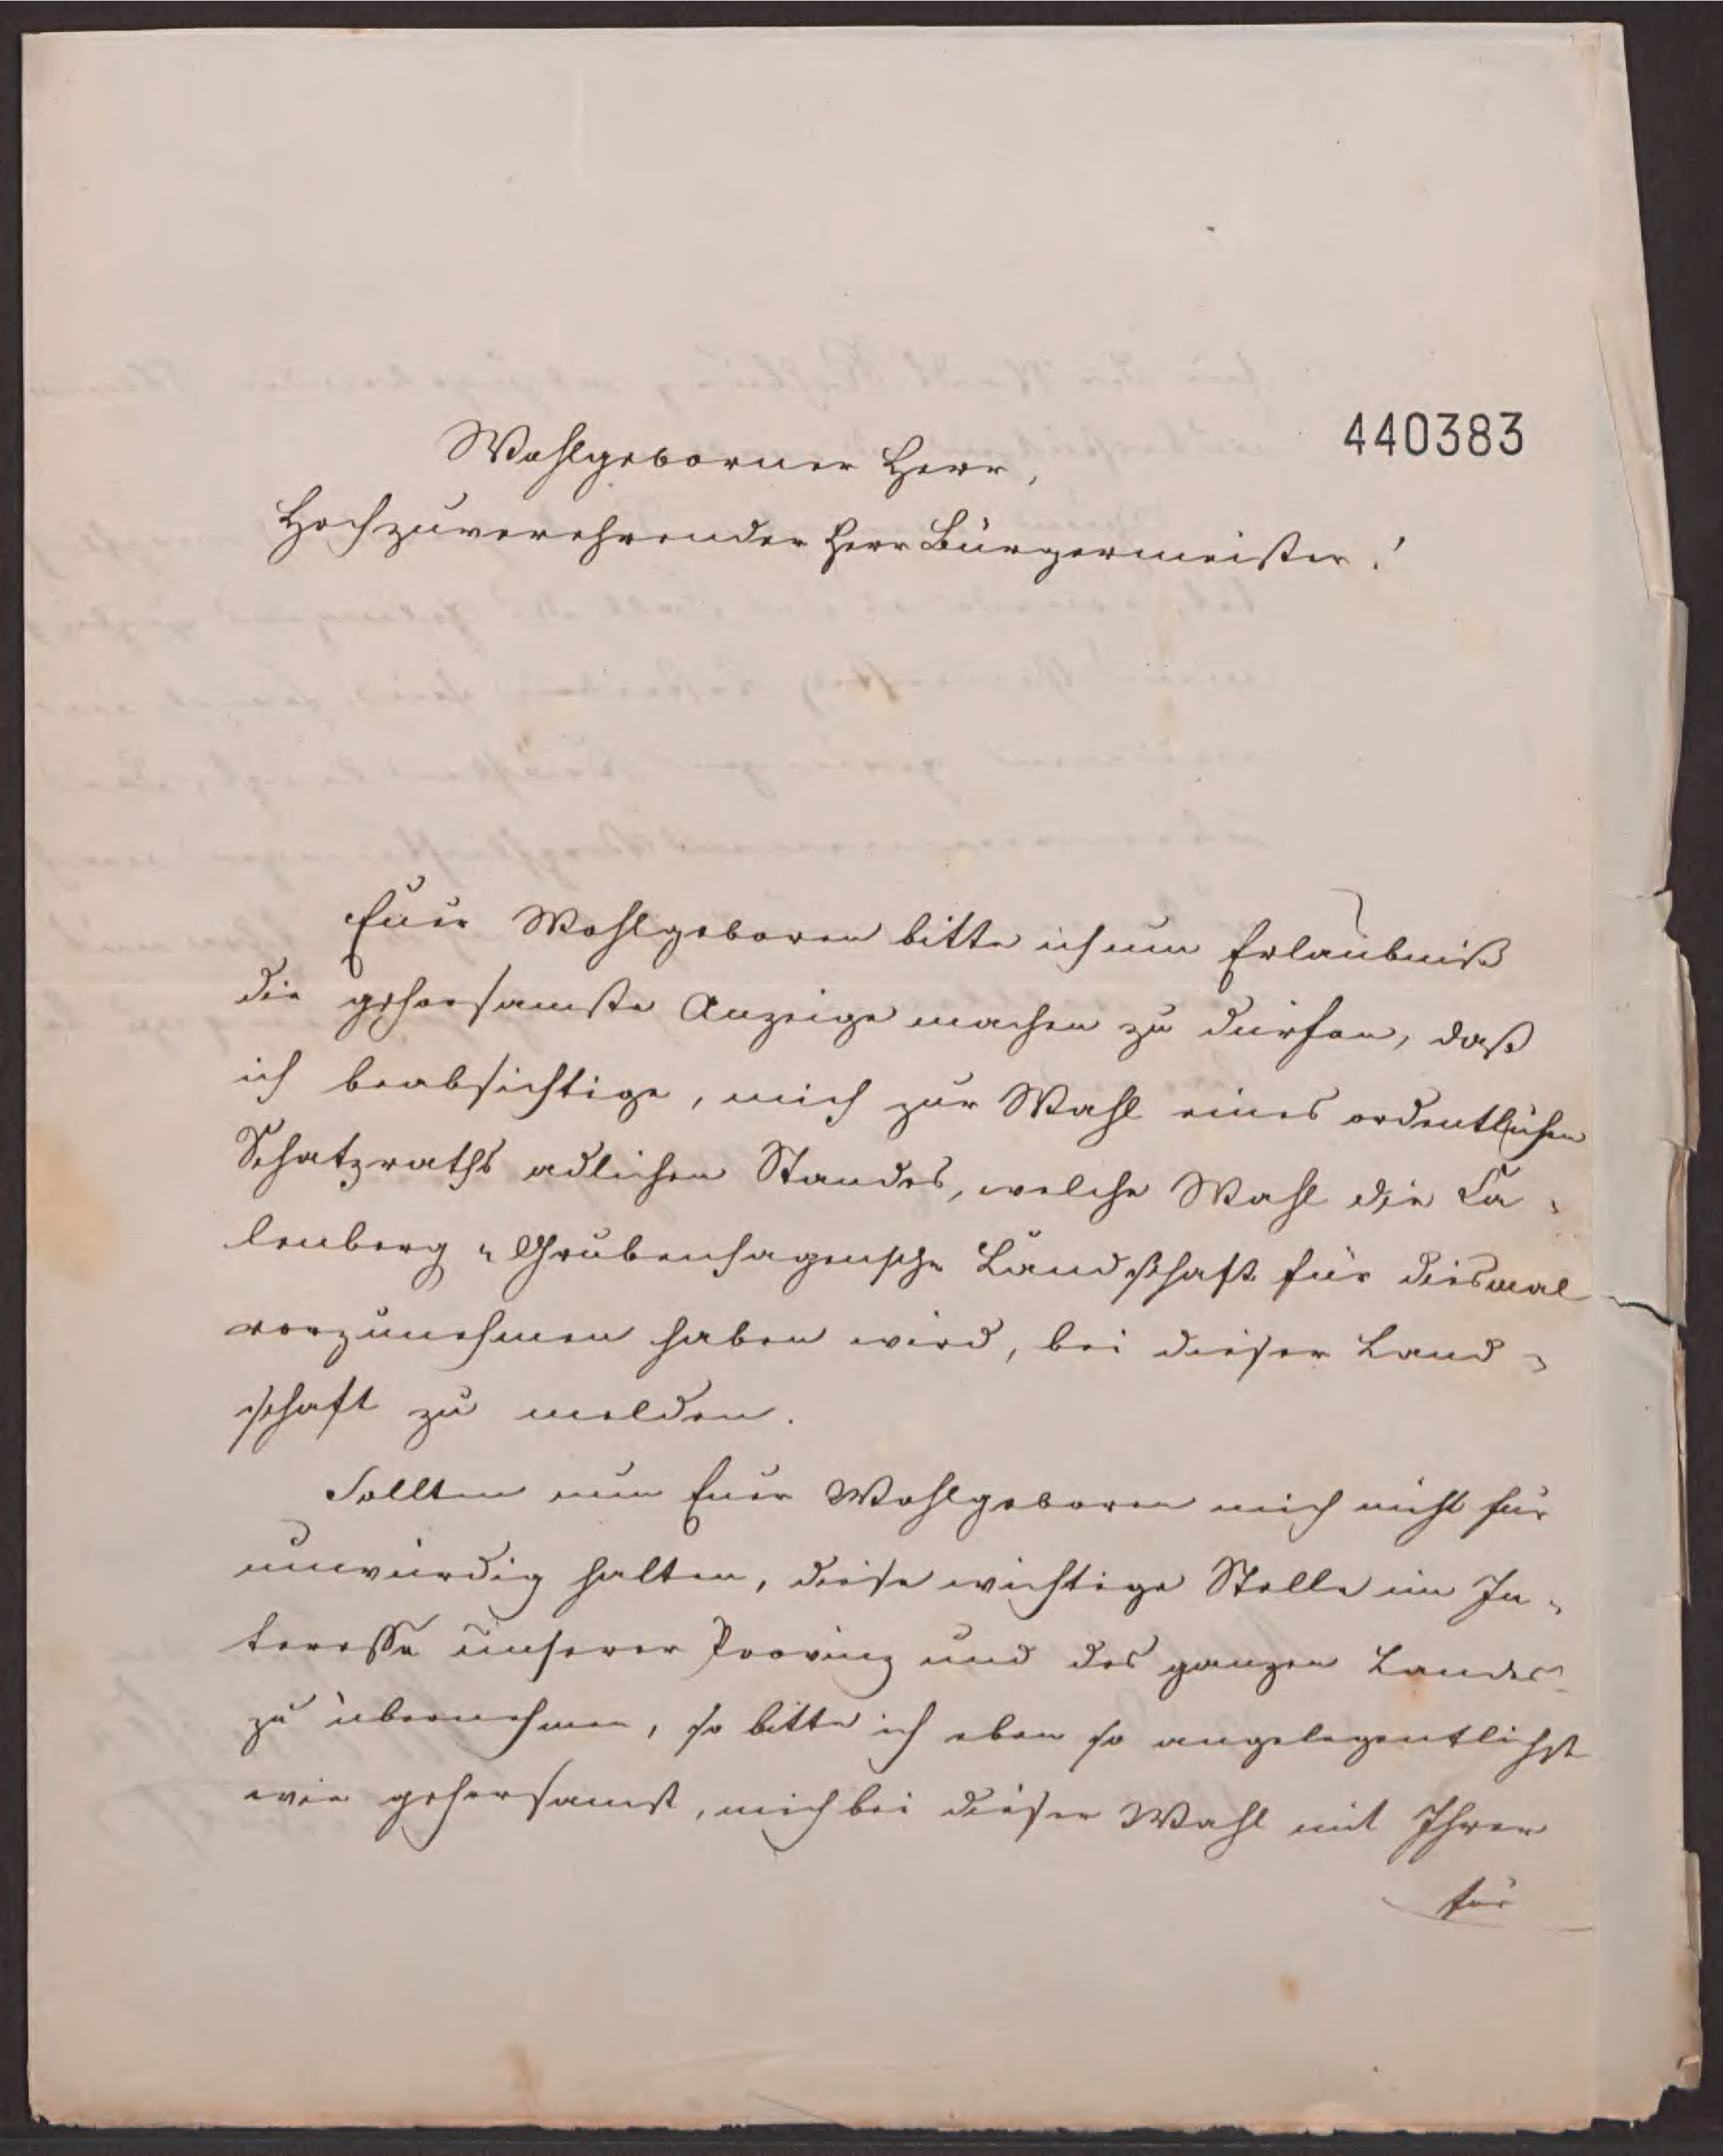 440383
Wohlgeborner Herr,
Hochzuverehrender Herr Bürgermeister!
Euer Wohlgeboren bitte ich um Erlaubniß
die gehorsamste Anzeige machen zu dürfen, daß
ich beabsichtige, mich zur Wahl eines ordentlichen
Schatzraths adlichen Standes, welche Wahl die Ca-
lenberg-Grubenhagensche Landschaft für diesmal
vorzunehmen haben wird, bei dieser Land-
schaft zu melden.
Sollten nun Euer Wohlgeboren mich nicht für
unwürdig halten, diese wichtige Stelle im In-
teresse unserer Provinz und des ganzen Landes
zu übernehmen, so bitte ich eben so angelegentlichst
wie gehorsamst, mich bei dieser Wahl mit Ihrer
für